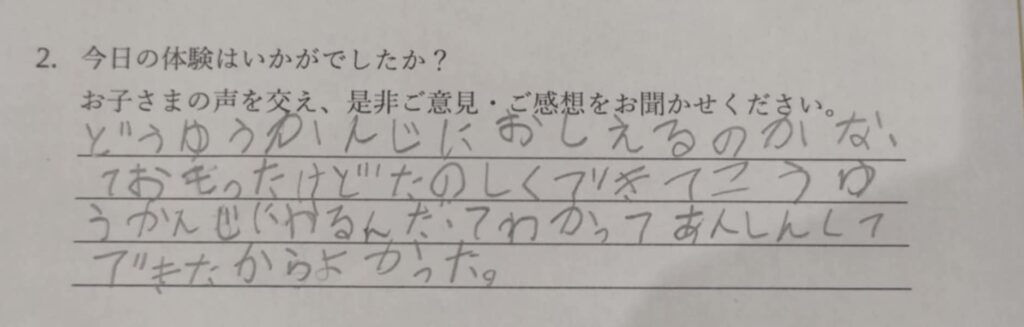 2. 今日の体験はいかがでしたか?
お子さまの声を交え、是非ご意見・ご感想をお聞かせください。
どうゆうかんじにおしえるのかな、
ておもったけどたのしくできてこうゆ
うかんじにわるんだってわかってあんしんして
できたからよかった。